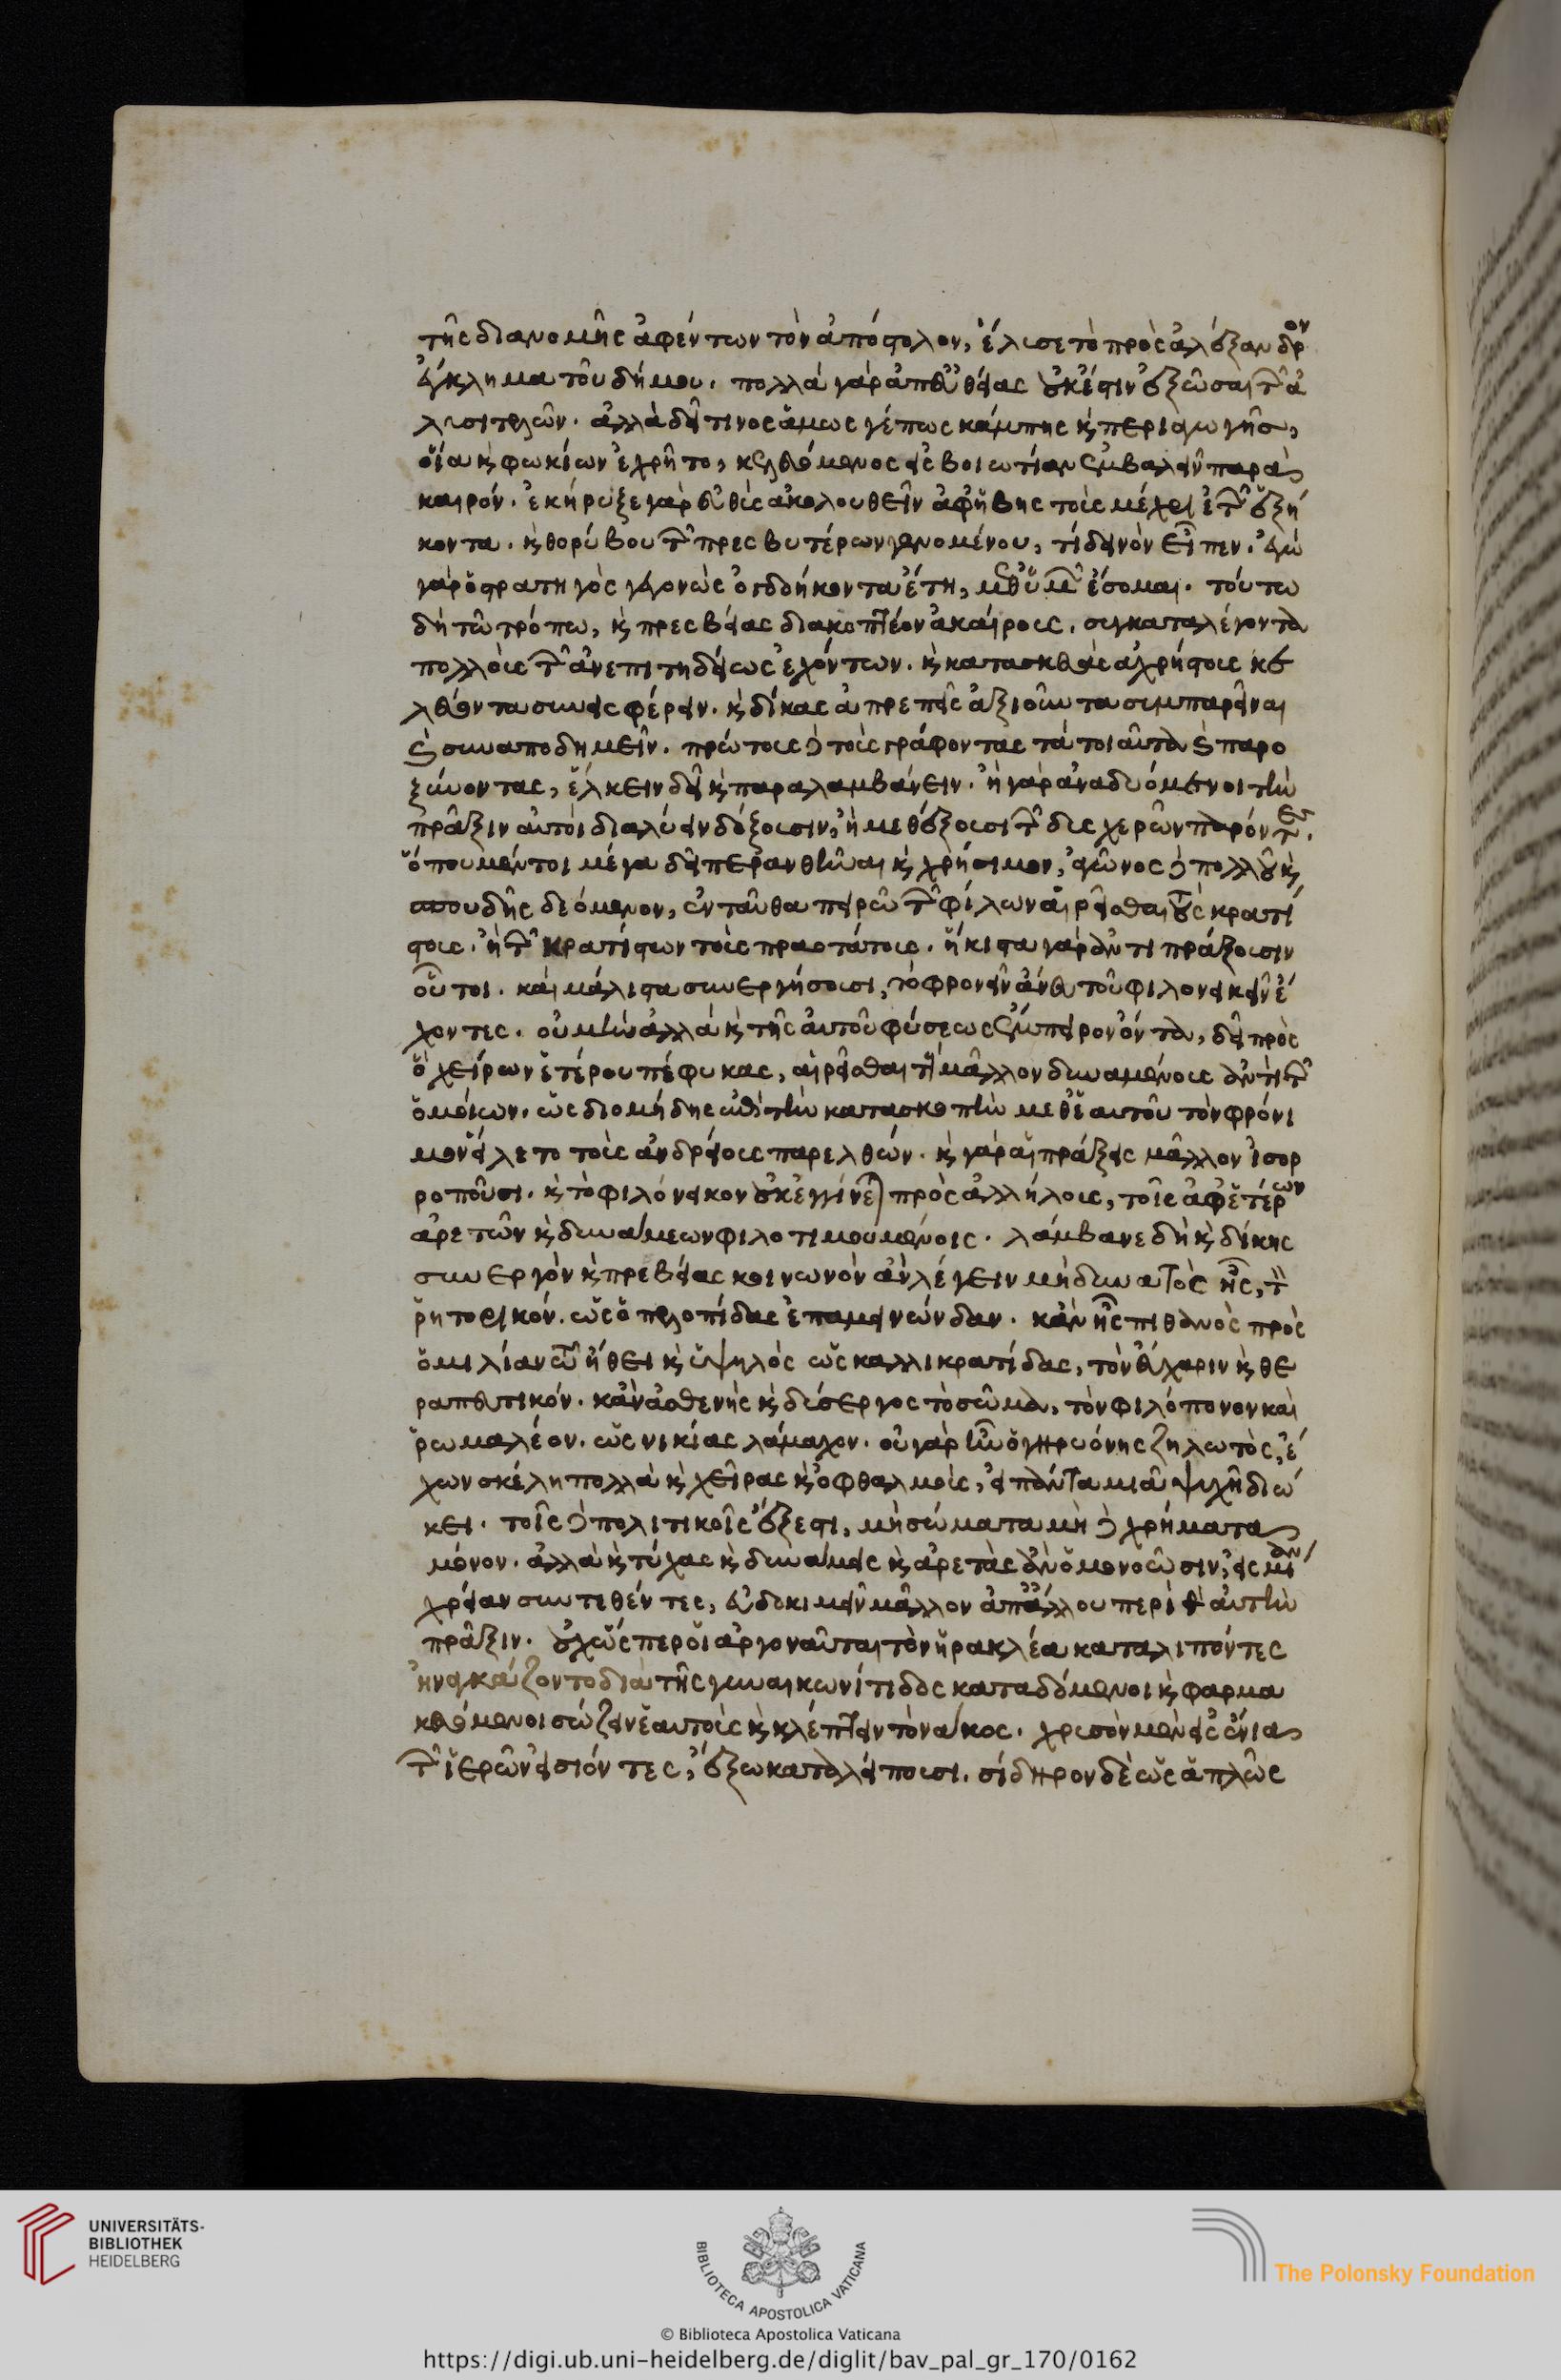 τῆς διανομῆς ἀφέντων τὸν ἀπόστολον, ἔλυσε τὸ πρὸς ἀλέξανδρον
ἔγκλημα τοῦ δήμου. πολλὰ γὰρ ἀπευθείας οὐκ ἔστιν ἐξῶσαι τῶν ἀ
λυσιτελῶν. ἀλλὰ δεῖ τινος ἁμωσγέπως καμπῆς καὶ περιαγωγῆς,
οἵα καὶ φωκίων ἐχρῆτο, κελευόμενος εἰς βοιωτίαν ἐμβαλεῖν παρὰ
καιρόν. ἐκήρυξε γὰρ εὐθὺς ἀκολουθεῖν ἀφ' ἥβης τοὺς μέχρι ἐτῶν ἑξή
κοντα. καὶ θορύβου τῶν πρεσβυτέρων γενομένου, τί δεινὸν εἶπεν. ἐγὼ
γὰρ ὁ στρατηγὸς γεγονὼς ὀγδοήκοντα ἔτη, μεθ' ὑμῶν ἔσομαι. τούτω
δὴ τῶ τρόπω, καὶ πρεσβείας διακοπτέον ἀκαίρους. συγκαταλέγοντα
πολλοὺς τῶν ἀνεπιτηδείως ἐχόντων. καὶ κατασκευὰς ἀχρήστους κε
λεύοντα συνεισφέρειν. καὶ δίκας ἀπρεπεῖς ἀξιοῦντα συμπαρεῖναι
καὶ συναποδημεῖν. πρώτους δὲ τοὺς γράφοντας τὰ τοιαῦτα καὶ παρο
ξύνοντας, ἕλκειν δεῖ καὶ παραλαμβάνειν. ἢ γὰρ ἀναδυόμενοι τὴν
πρᾶξιν αὐτοὶ διαλύειν δόξουσιν, ἢ μεθέξουσι τῶν δυσχερῶν παρόντες.
ὅπου μέντοι μέγα δεῖ περανθῆναι καὶ χρήσιμον, ἀγῶνος δὲ πολλοῦ καὶ
σπουδῆς δεόμενον, ἐνταῦθα πειρῶ τῶν φίλων αἱρεῖσθαι τοὺς κρατί
στους. ἢ τῶν κρατίστων τοὺς πραοτάτους. ἥκιστα γὰρ ἀντιπράξουσιν
οὗτοι. καὶ μάλιστα συνεργήσουσι, τὸ φρονεῖν ἄνευ τοῦ φιλονεικεῖν ἔ
χοντες. οὐ μὴν ἀλλὰ καὶ τῆς αὑτοῦ φύσεως ἔμπειρον ὄντα, δεῖ πρὸς
ὃ χείρων ἑτέρου πέφυκας, αἱρεῖσθαι τοὺς μᾶλλον δυναμένους ἀντὶ τῶν
ὁμοίων. ὡς διομήδης ἐπὶ τὴν κατασκοπὴν μεθ' ἑαυτοῦ τὸν φρόνι
μον εἵλετο τοὺς ἀνδρείους παρελθών. καὶ γὰρ αἱ πράξεις μᾶλλον ἰσορ
ροποῦσι. καὶ τὸ φιλόνεικον οὐκ ἐγγίνεται πρὸς ἀλλήλους, τοῖς ἀφ' ἑτέρων
ἀρετῶν καὶ δυνάμεων φιλοτιμουμένοις. λάμβανε δὴ καὶ δίκης
συνεργὸν καὶ πρεβείας κοινωνὸν ἂν λέγειν μὴ δυνατὸς ἦς, τὸν
ῥητορικόν. ὡς ὁ πελοπίδας ἐπαμεινώνδαν. κἂν ἦς πιθανὸς πρὸς
ὁμιλίαν τῶ ἤθει καὶ ὑψηλὸς ὡς καλλικρατίδας, τὸν εὔχαριν καὶ θε
ραπευτικόν. κἂν ἀσθενὴς καὶ δύσεργος τὸ σῶμα, τὸν φιλόπονον καὶ
ῥωμαλέον. ὡς νικίας λάμαχον. οὐ γὰρ ἦν ὁ γηρυόνης ζηλωτὸς, ἔ
χων σκέλη πολλὰ καὶ χεῖρας καὶ ὀφθαλμοὺς, εἰ πάντα μιᾶ ψυχῆ διώ
κει. τοῖς δὲ πολιτικοῖς ἔξεστι, μὴ σώματα μὴ δὲ χρήματα
μόνον. ἀλλὰ καὶ τύχας καὶ δυνάμεις καὶ ἀρετὰς ἂν ὁμονοῶσιν, εἰς μίαν
χρείαν συντεθέντες, εὐδοκιμεῖν μᾶλλον ἀπ' ἄλλου περὶ τὴν αὐτὴν
πρᾶξιν. οὐχ ὥσπερ οἱ ἀργοναῦται τὸν ἡρακλέα καταλιπόντες
ἠναγκάζοντο διὰ τῆς γυναικωνίτιδος καταδόμενοι καὶ φαρμα
κευόμενοι σώζειν ἑαυτοὺς καὶ κλέπτειν τὸ νάκος. χρυσὸν μὲν εἰς ἔνια
τῶν ἱερῶν εἰσιόντες, ἔξω καταλείπουσι. σίδηρον δὲ ὡς ἁπλῶς
UNIVERSITÄTS-
BIBLIOTHEK
HEIDELBERG
BIBLIOTECA APOSTOLICA VATICANA
The Polonsky Foundation
© Biblioteca Apostolica Vaticana
https://digi.ub.uni-heidelberg.de/diglit/bav_pal_gr_170/0162